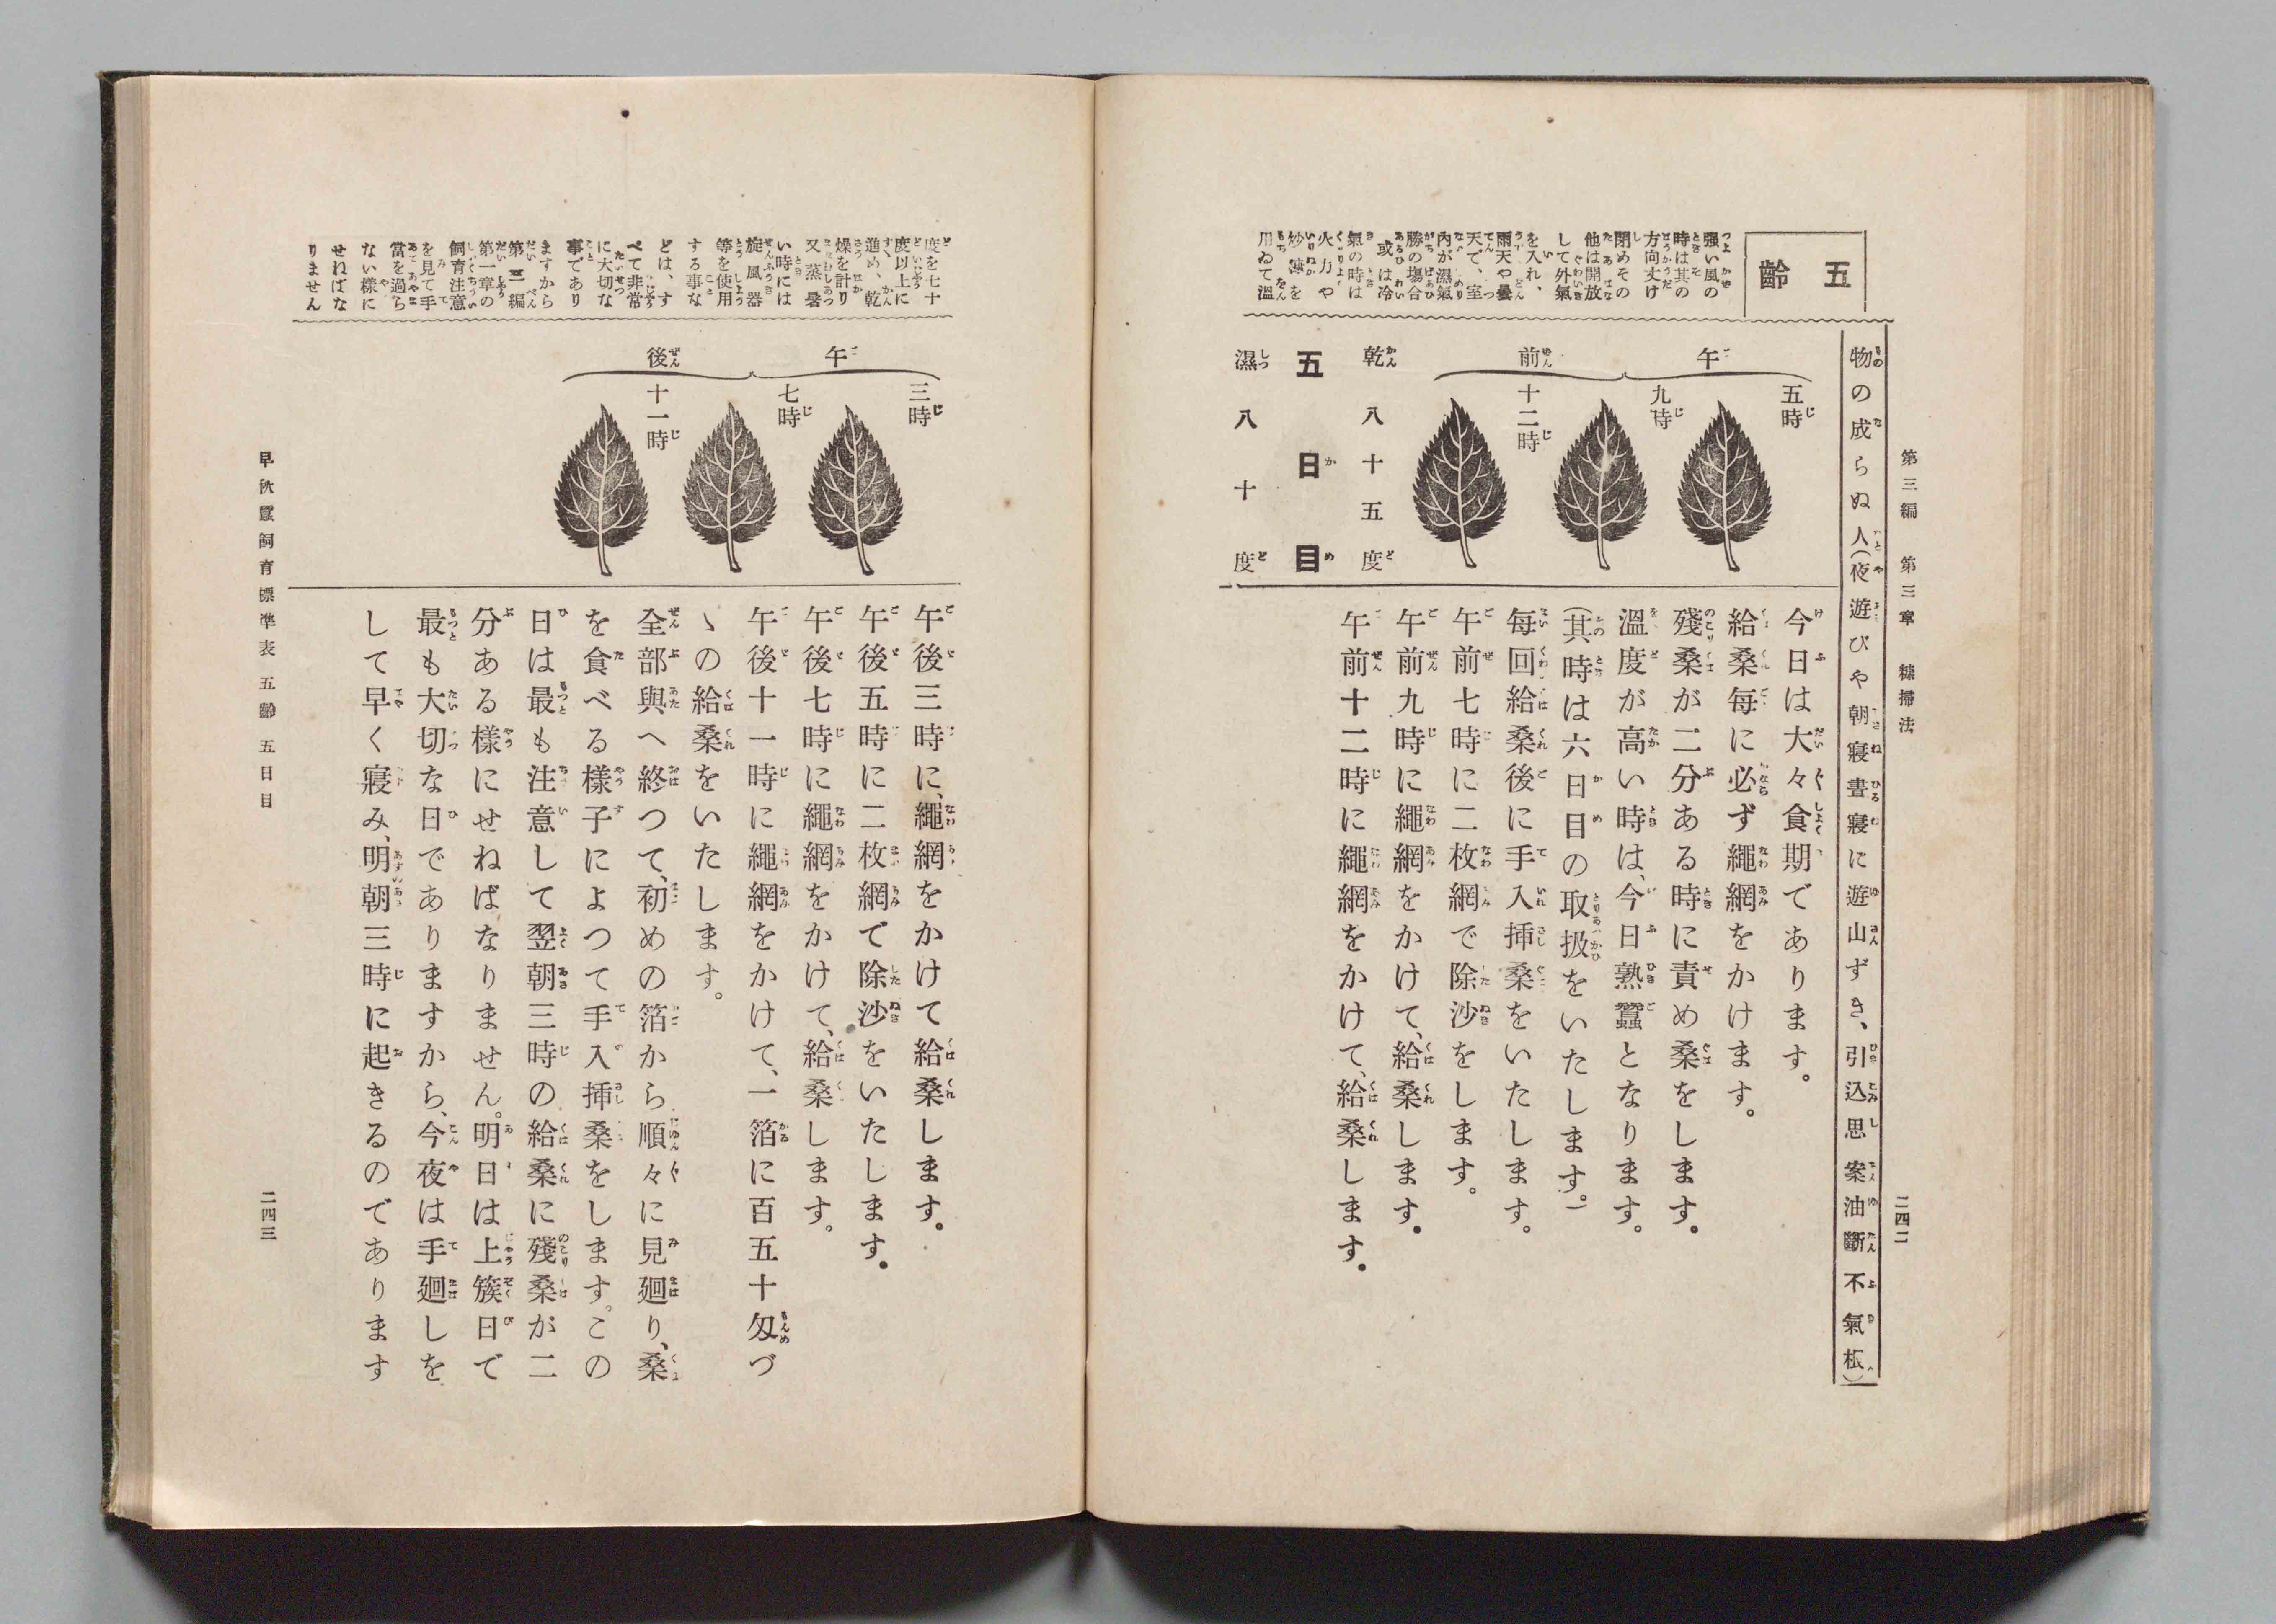 第三編　第三章　糠掃法
二四二
物の成らぬ人(夜遊びや朝寢晝寢に遊山ずき、引込思案油斷不氣根)
五齡
强い風の
時は其の
方向丈け
閉めその
他は開放
して外氣
を入れ、
雨天や曇
天で、室
內が濕氣
勝の場合
或は冷
氣の時は
火力や
炒糠を
用ゐて溫
午前
五時
九時
十二時
乾八十五度
五日目
濕八十度
今日は大々食期であります。
給桑每に必ず繩網をかけます。
殘桑が二分ある時に責め桑をします。
溫度が高い時は、今日熟蠶となります。
(其時は六日目の取扱をいたします。)
每回給桑後に手入揷桑をいたします。
午前七時に二枚網で除沙をします。
午前九時に繩網をかけて、給桑します。
午前十二時に繩網をかけて、給桑します。
度を七十
度以上に
進め、乾
燥を計り
又蒸暑
い時には
旋風器
等を使用
する事な
どは、す
べて非常
に大切な
事であり
ますから
第三編
第一章の
飼育注意
を見て手
當を過ら
ない樣に
せねばな
りません
午後
三時
七時
十一時
午後三時に、繩網をかけて給桑します。
午後五時に二枚網で除沙をいたします。
午後七時に繩網をかけて、給桑します。
午後十一時に繩網をかけて、一箔に百五十匁づ
ゝの給桑をいたします。
全部與へ終つて、初めの箔から順々に見廻り、桑
を食べる樣子によつて手入揷桑をします。この
日は最も注意して翌朝三時の給桑に殘桑が二
分ある樣にせねばなりません。明日は上簇日で
最も大切な日でありますから、今夜は手廻しを
して早く寢み、明朝三時に起きるのであります
早秋蠶飼育標準表　五齡　五日目
二四三